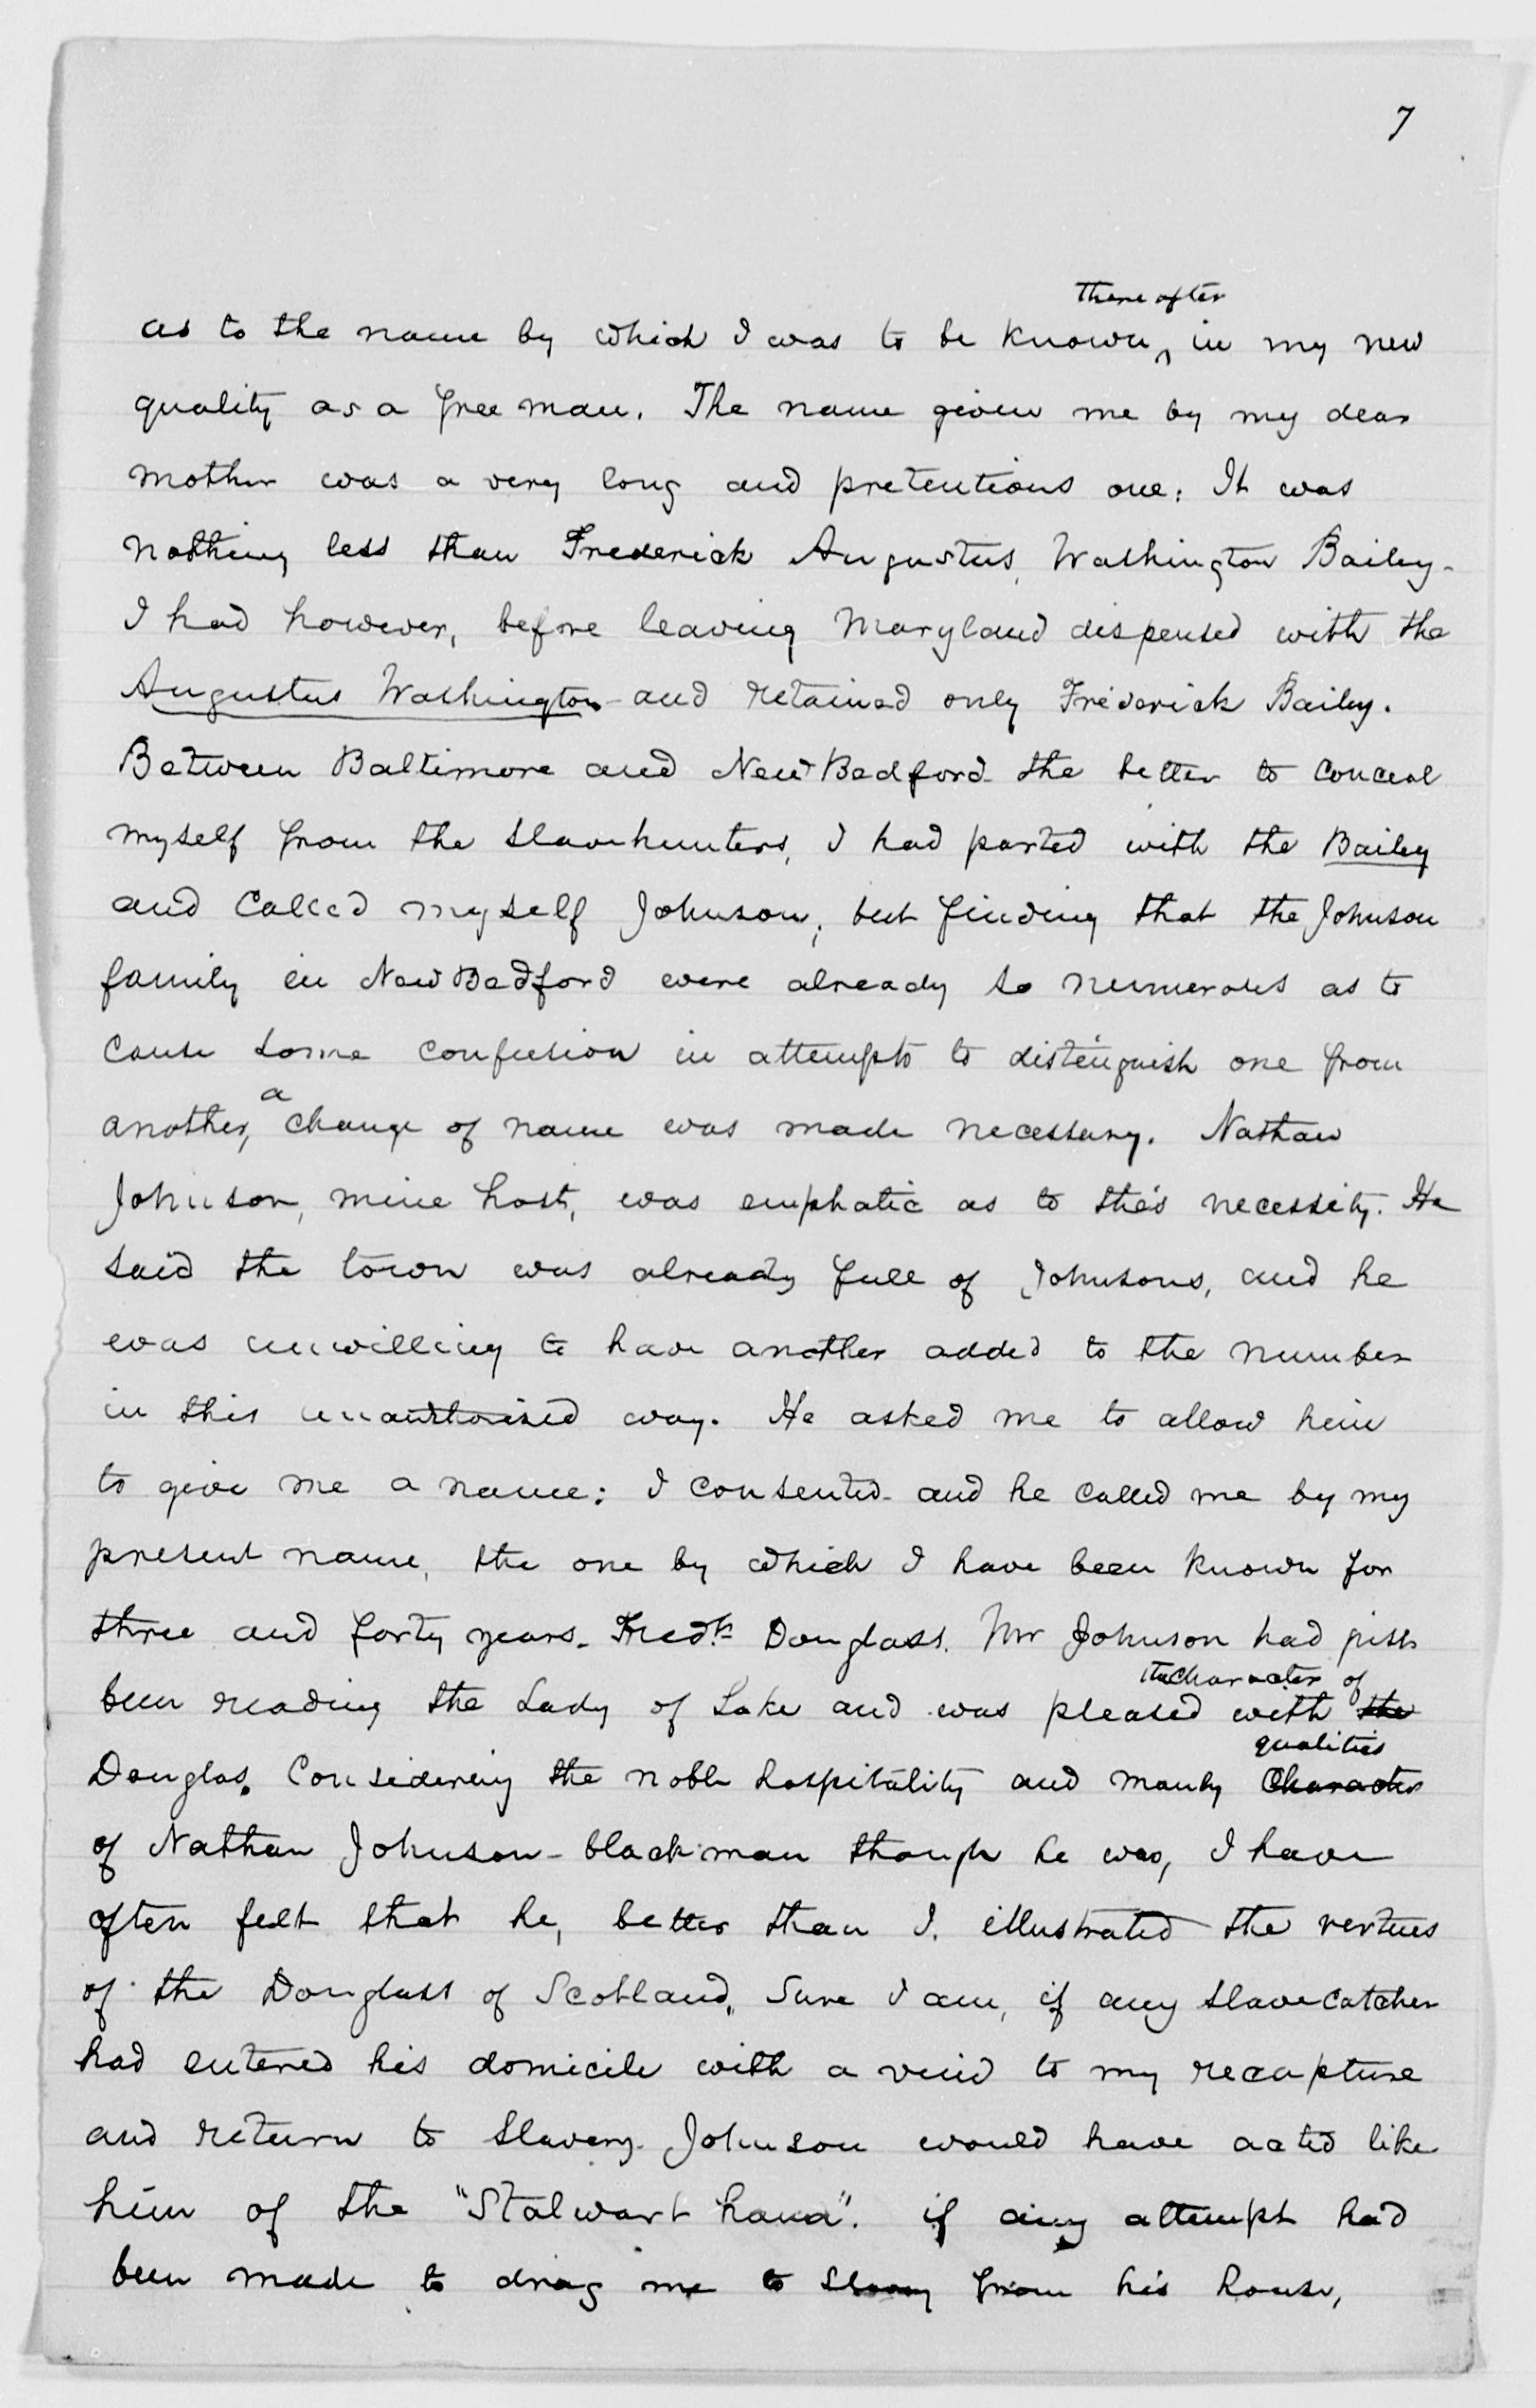 7
thereafter
as to the name by which I was to be known, in my new
quality as a free man. The name given me by my dear
mother was a very long and pretentious one: It was
nothing less than Frederick Augustus, Washington Bailey-
I had however, before leaving Maryland dispensed with the
Augustus Washington and retained only Frederick Bailey.
Between Baltimore and New Bedford the better to conceal
myself from the Slavehunters, I had parted with the Bailey
and called myself Johnson; but finding that the Johnson
family in New Bedford were already so numerous as to
cause some confusion in attempts to distinguish one from
a
another, change of name was made necessary. Nathan
Johnson, mine host, was emphatic as to this necessity. He
said the town was already full of Johnsons, and he
was unwilling to have another added to the number
in this unauthorised way. He asked me to allow him
to give me a name: I consented- and he called me by my
present name, the one by which I have been known for
three and forty years- Fredk Douglass. Mr Johnson had just
the character of
been reading the Lady of Lake and was pleased with the
qualities
Douglas. Considering the noble hospitality and manly Character
of Nathan Johnson- black man though he was, I have
often felt that he, better than I, illustrated the vertues
of the Douglass of Scotland, Sure I am, if any slave catcher
had entered his domicile with a veiw to my recapture
and return to Slavery- Johnson would have acted like
him of the "Stalwart hand". if any attempt had
been made to drag me to Slavery from his house,